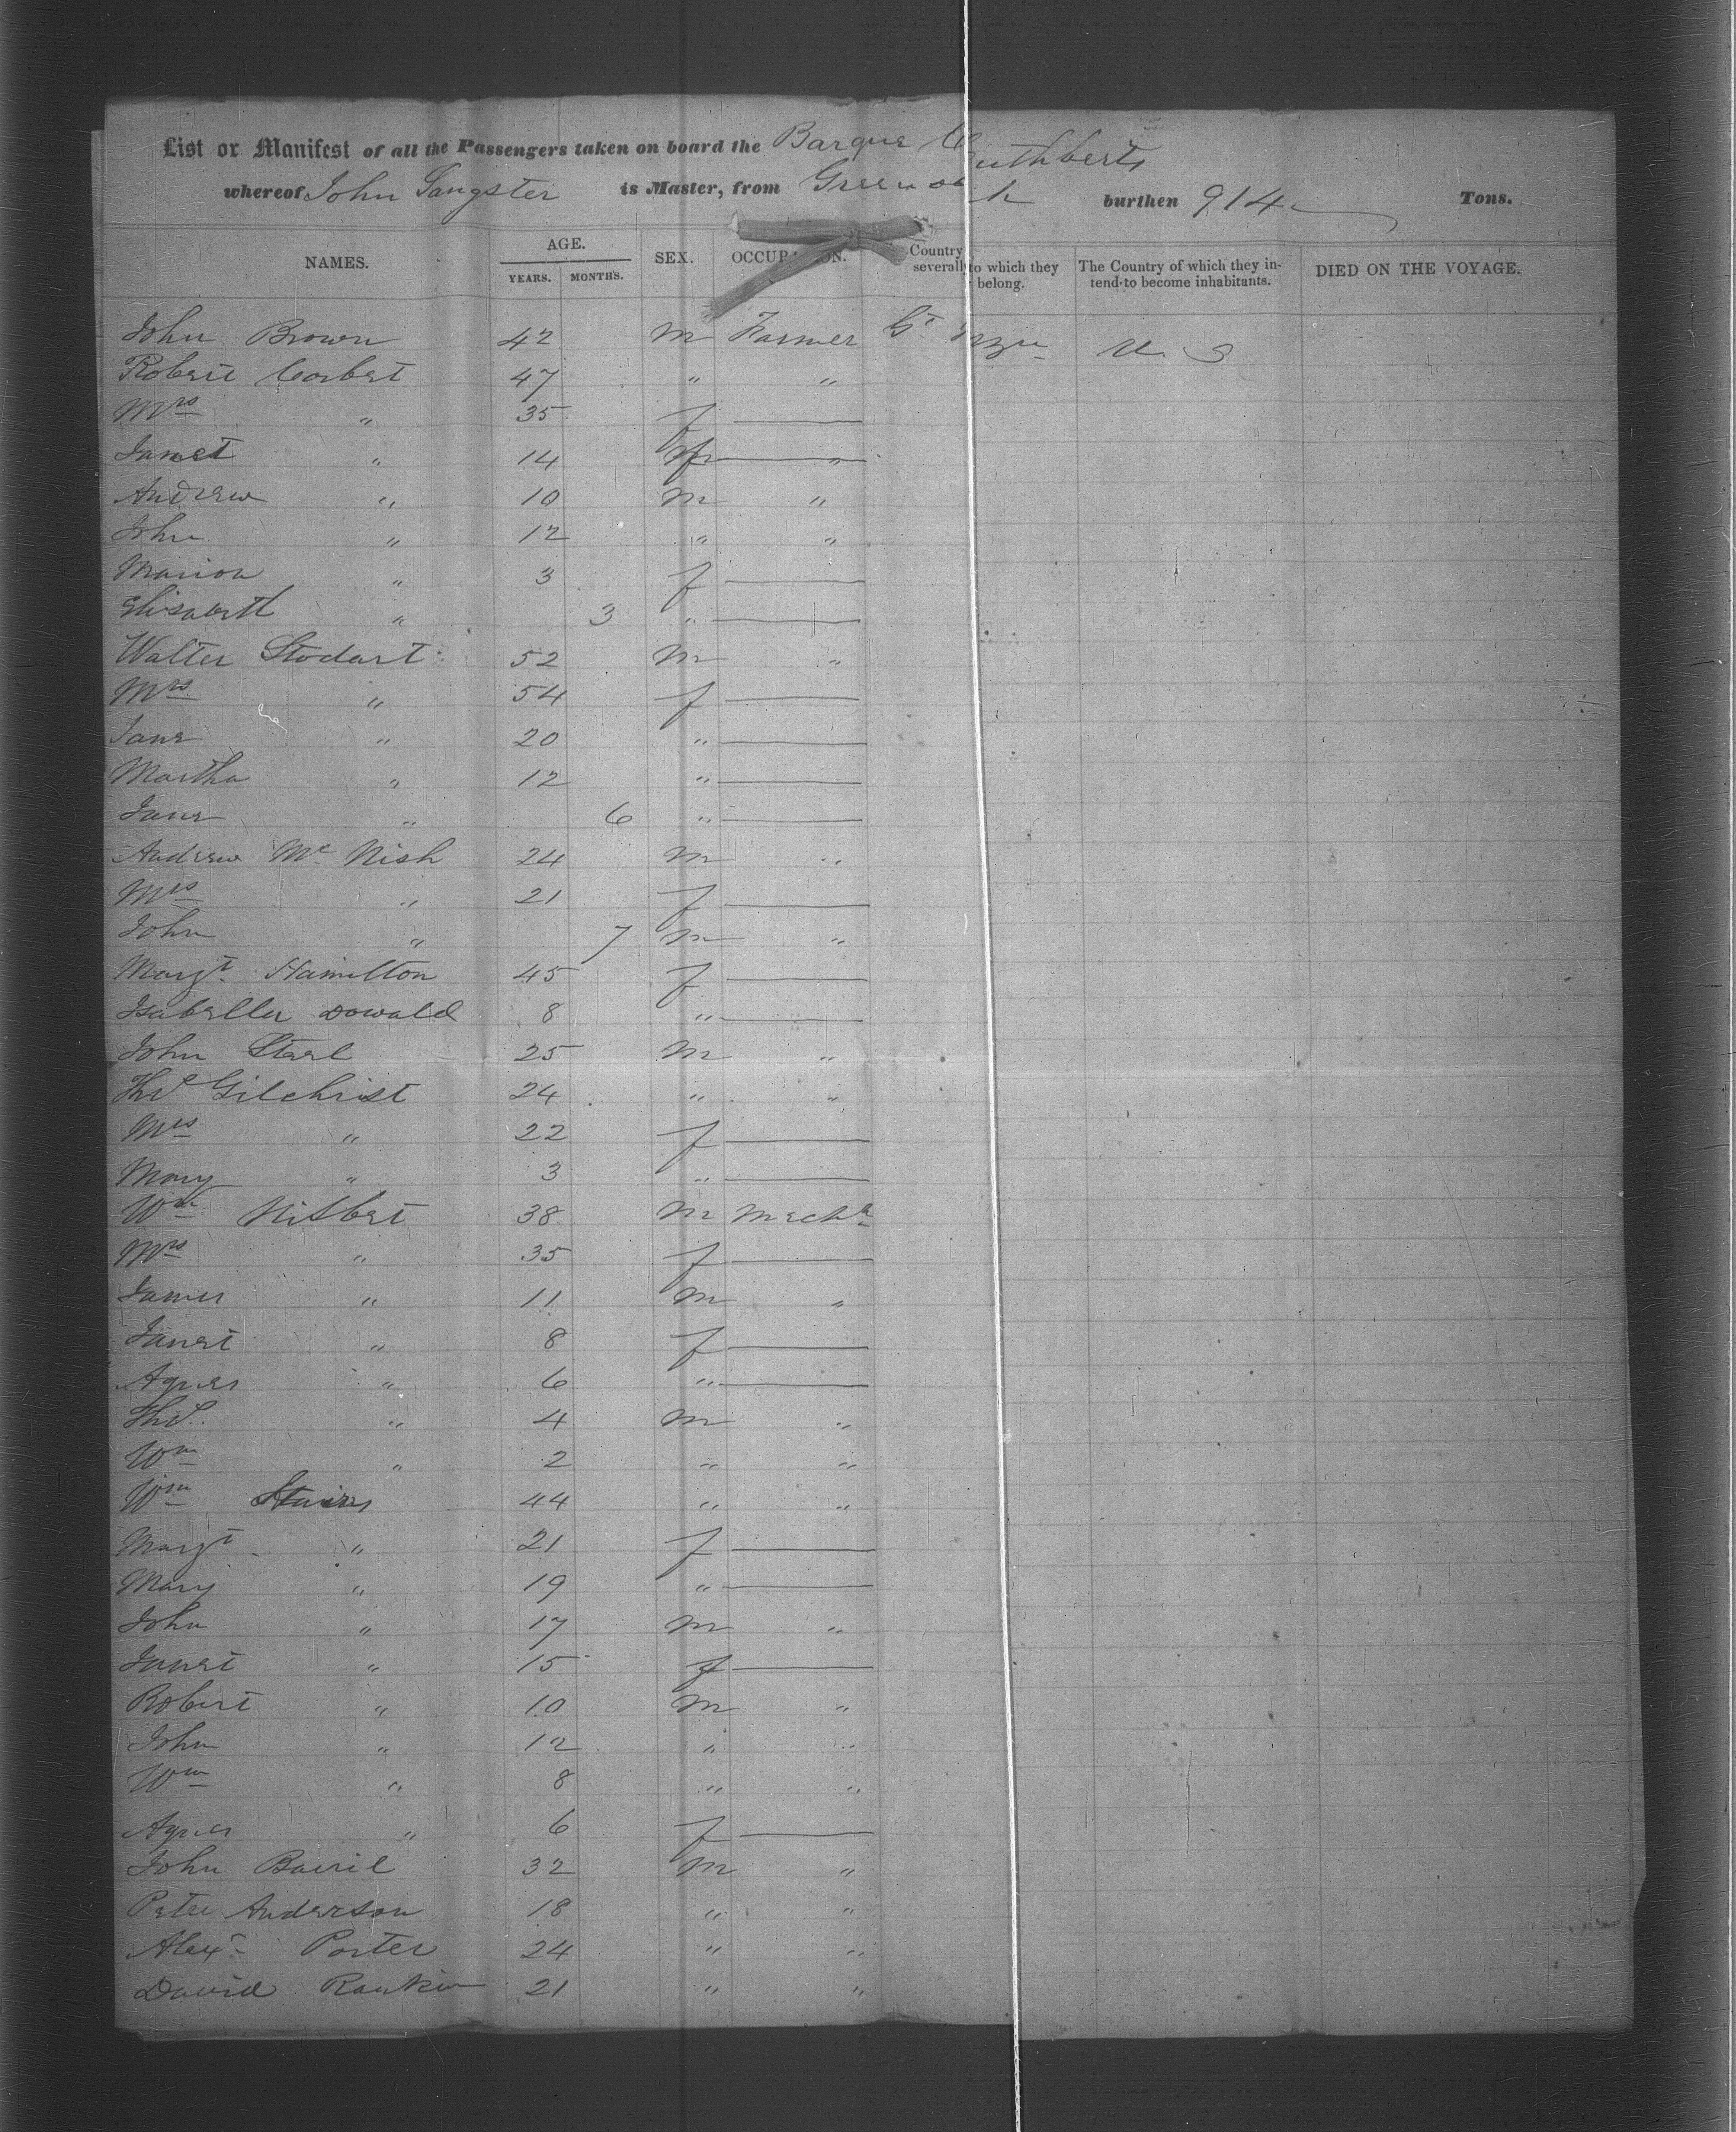 List or Manifest of all the Passengers taken on board the Barque Cuthberts
whereof John Sangster is Master, from Greenock burthen 914 Tons.
NAMES. AGE. YEARS. MONTHS. SEX. OCCUPATION. Country severally to which they belong. The Country of which they intend to become inhabitants. DIED ON THE VOYAGE.
John Brown 42 m Farmer Gt U. S
Robert Corbet 47 " "
Mrs " 35 f
Janet " 14 f "
Andrew " 10 m "
John " 12 " "
Marion " 3 f
Elisabeth " 3 "
Walter Stodart 52 m "
Mrs " 54 f
Jane " 20 "
Martha " 12 "
Jane " 6 "
Andrew Mc Nish 24 m "
Mrs " 21 f
John " 7 m "
Margt Hamilton 45 f
Isabella Dowald 8 "
John Steel 25 m "
Thos Gilchrist 24 " "
Mrs " 22 f
Mary " 3 "
Wm Nisbet 38 m Mechc
Mrs " 35 f
James " 11 m "
Janet " 8 f
Agnes " 6 "
Thos " 4 m "
Wm " 2 " "
Wm Stairs 44 " "
Margt " 21 f
Mary " 19 "
John " 17 m "
Janet " 15 f
Robert " 10 m "
John " 12 " "
Wm " 8 " "
Agnes " 6 f
John 32 m "
Peter Anderson 18 " "
Alexr Porter 24 " "
David Rankin 21 " "